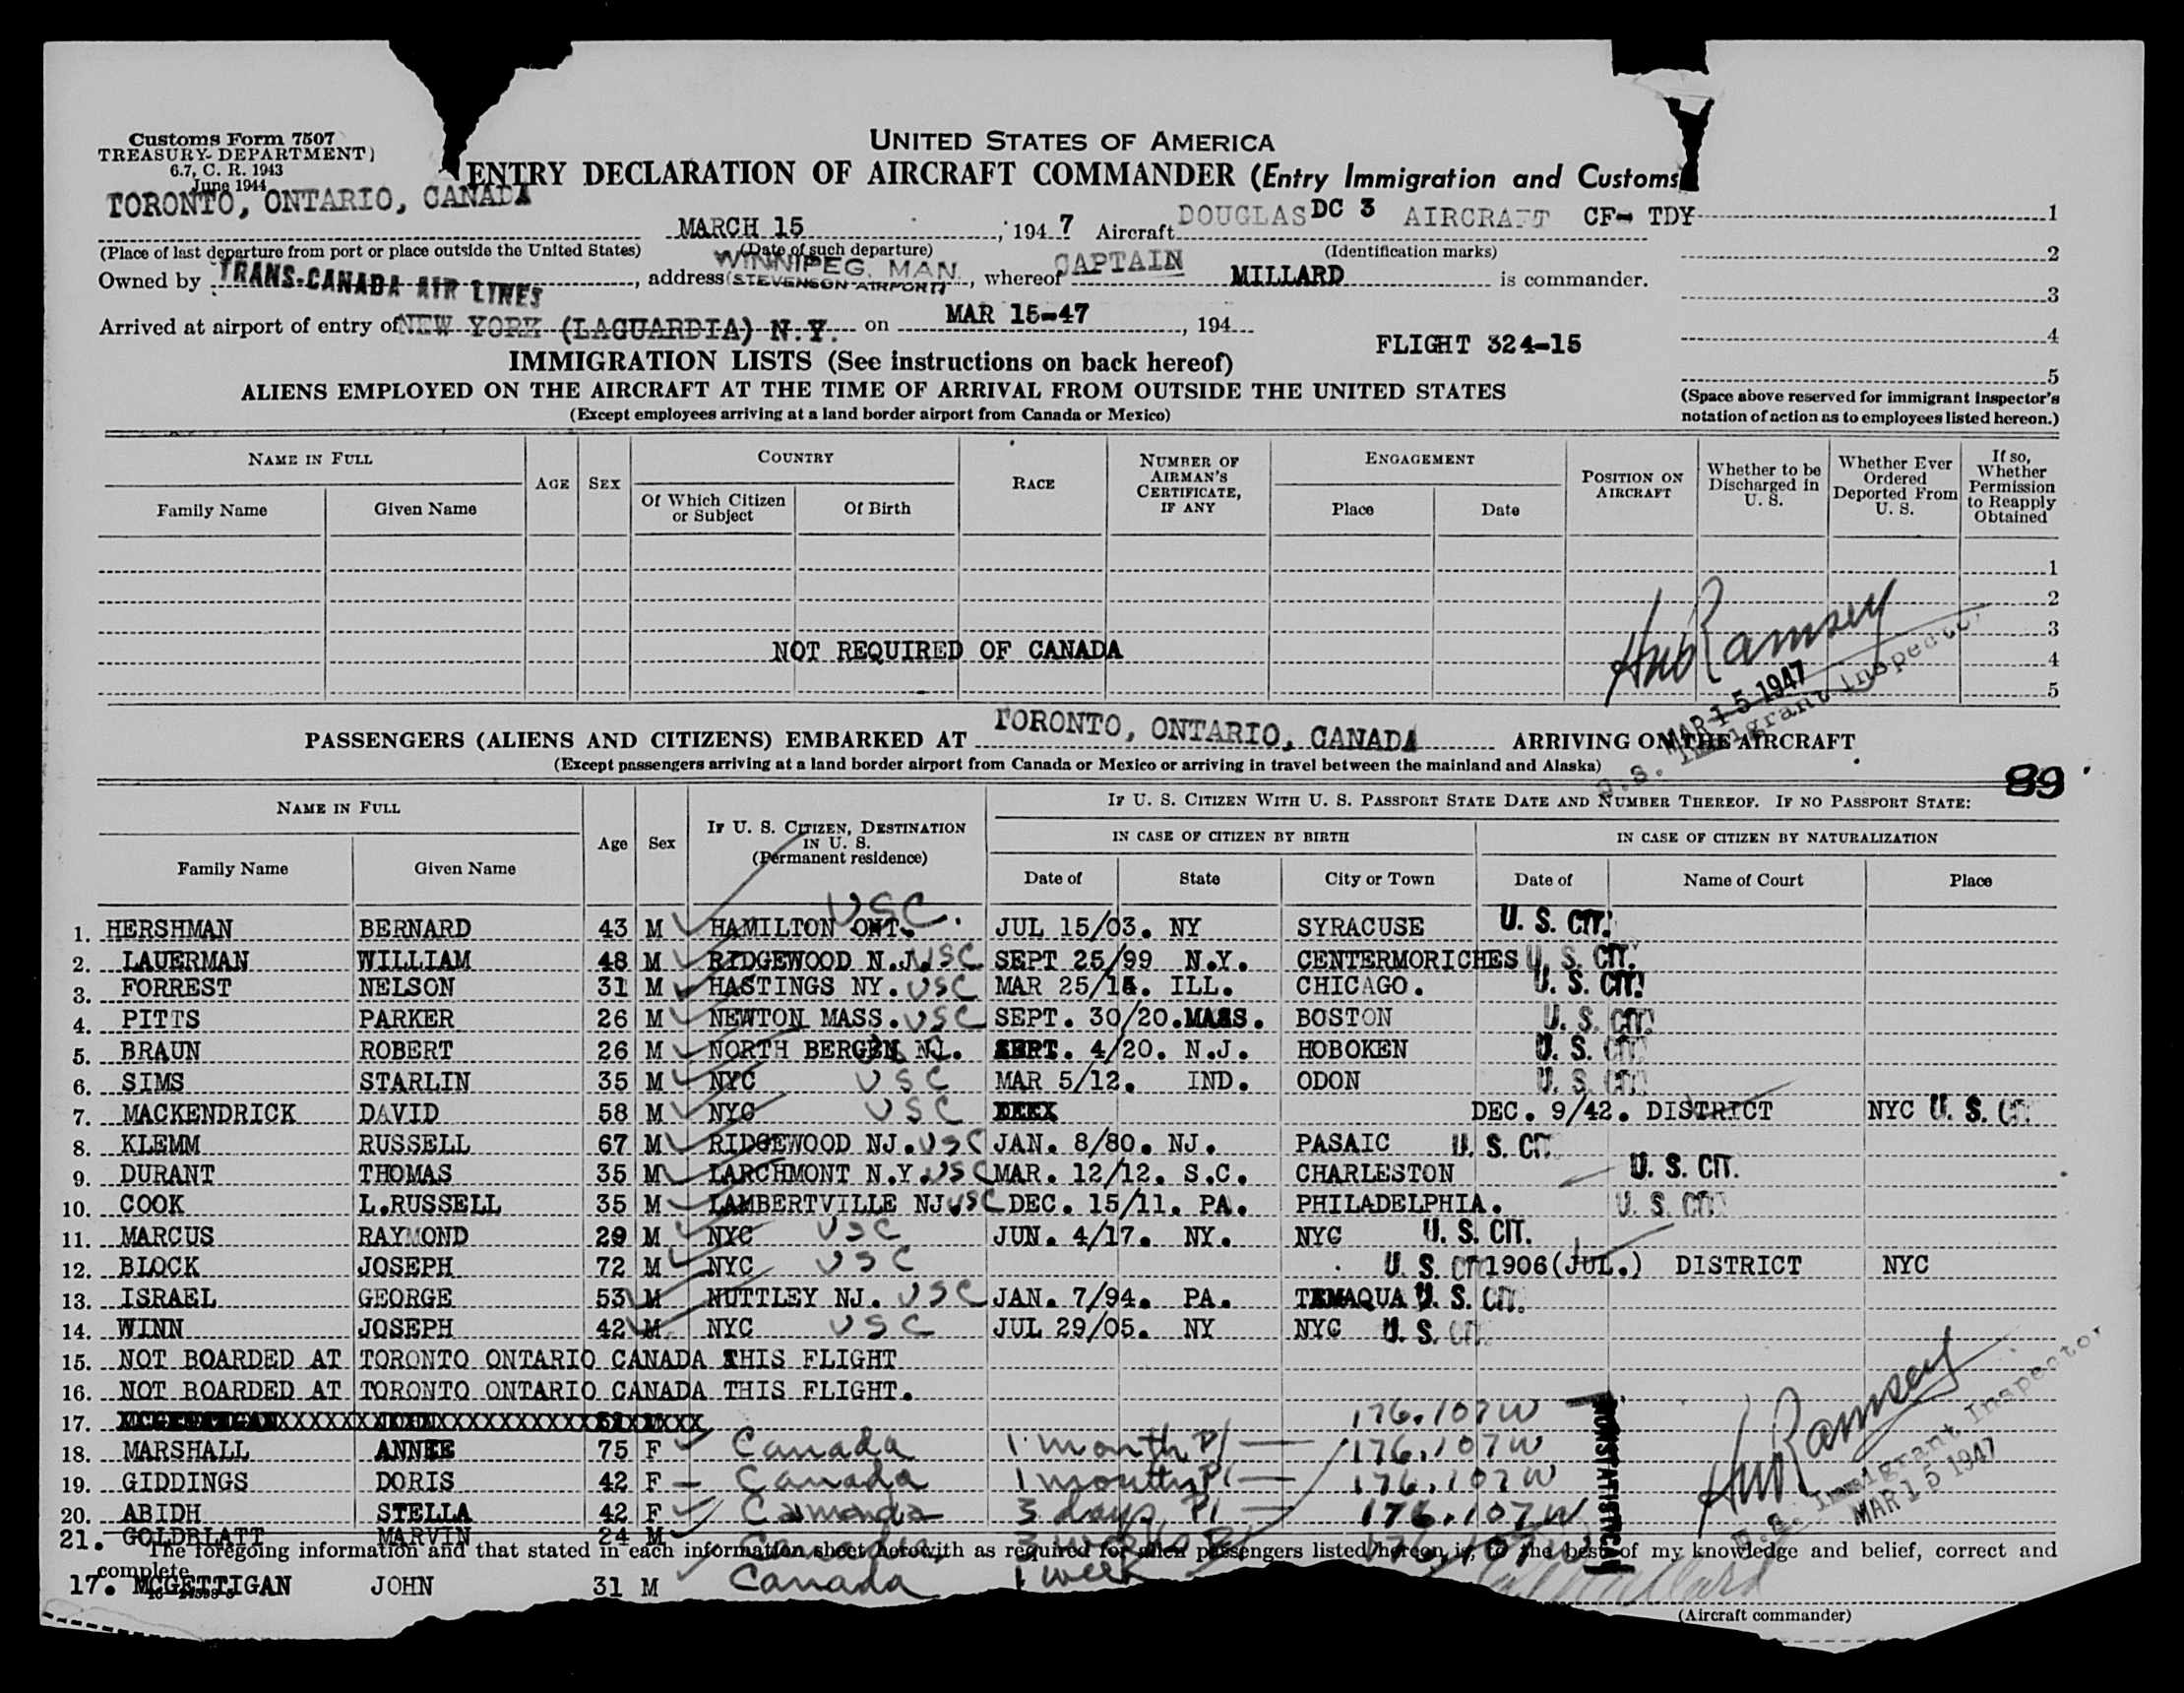 Customs Form 7507
TREASURY DEPARTMENT)
6.7, C. R. 1943
June 1944
UNITED STATES OF AMERICA
ENTRY DECLARATION OF AIRCRAFT COMMANDER (Entry Immigration and Customs
TORONTO, ONTARIO, CANADA MARCH 15 , 194 7 Aircraft DOUGLAS DC 3 AIRCRAFT CF- TDY 1
(Place of last departure from port or place outside the United States) (Date of such departure) (Identification marks) 2
Owned by TRANS-CANADA AIR LINES , address WINNIPEG, MAN. (STEVENSON AIRPORT) , whereof CAPTAIN MILLARD is commander.
3
Arrived at airport of entry of NEW YORK (LAGUARDIA) N.Y. on MAR 15-47 , 194
4
FLIGHT 324-15
IMMIGRATION LISTS (See instructions on back hereof)
5
ALIENS EMPLOYED ON THE AIRCRAFT AT THE TIME OF ARRIVAL FROM OUTSIDE THE UNITED STATES
(Except employees arriving at a land border airport from Canada or Mexico)
(Space above reserved for immigrant inspector's
notation of action as to employees listed hereon.)
NAME IN FULL
Family Name Given Name
AGE SEX
COUNTRY
Of Which Citizen or Subject Of Birth
RACE
NUMBER OF AIRMAN'S CERTIFICATE, IF ANY
ENGAGEMENT
Place Date
POSITION ON AIRCRAFT
Whether to be Discharged in U. S.
Whether Ever Ordered Deported From U. S.
If so, Whether Permission to Reapply Obtained
1
2
3
NOT REQUIRED OF CANADA
4
5
Ramsey
MAR 15 1947
U.S. Immigrant Inspector
PASSENGERS (ALIENS AND CITIZENS) EMBARKED AT TORONTO, ONTARIO, CANADA ARRIVING ON THE AIRCRAFT
(Except passengers arriving at a land border airport from Canada or Mexico or arriving in travel between the mainland and Alaska)
89
NAME IN FULL
Family Name Given Name
Age Sex
IF U. S. CITIZEN, DESTINATION IN U. S. (Permanent residence)
IF U. S. CITIZEN WITH U. S. PASSPORT STATE DATE AND NUMBER THEREOF. IF NO PASSPORT STATE:
IN CASE OF CITIZEN BY BIRTH IN CASE OF CITIZEN BY NATURALIZATION
Date of State City or Town Date of Name of Court Place
1. HERSHMAN BERNARD 43 M HAMILTON ONT. USC. JUL 15/03. NY SYRACUSE U. S. CIT.
2. LAUERMAN WILLIAM 48 M RIDGEWOOD N.J. USC SEPT 25/99 N.Y. CENTERMORICHES U. S. CIT.
3. FORREST NELSON 31 M HASTINGS NY. USC MAR 25/15. ILL. CHICAGO. U. S. CIT.
4. PITTS PARKER 26 M NEWTON MASS. USC SEPT. 30/20. MASS. BOSTON U. S. CIT.
5. BRAUN ROBERT 26 M NORTH BERGEN NJ. SEPT. 4/20. N.J. HOBOKEN U. S. CIT.
6. SIMS STARLIN 35 M NYC USC MAR 5/12. IND. ODON U. S. CIT.
7. MACKENDRICK DAVID 58 M NYC USC DEC. 9/42. DISTRICT NYC U. S. CIT.
8. KLEMM RUSSELL 67 M RIDGEWOOD NJ. USC JAN. 8/80. NJ. PASAIC U. S. CIT.
9. DURANT THOMAS 35 M LARCHMONT N.Y. USC MAR. 12/12. S.C. CHARLESTON U. S. CIT.
10. COOK L.RUSSELL 35 M LAMBERTVILLE NJ USC DEC. 15/11. PA. PHILADELPHIA. U. S. CIT.
11. MARCUS RAYMOND 29 M NYC USC JUN. 4/17. NY. NYC U. S. CIT.
12. BLOCK JOSEPH 72 M NYC USC U. S. CIT 1906(JUL.) DISTRICT NYC
13. ISRAEL GEORGE 53 M NUTTLEY NJ. USC JAN. 7/94. PA. TAMAQUA U. S. CIT.
14. WINN JOSEPH 42 M NYC USC JUL 29/05. NY NYC U. S. CIT.
15. NOT BOARDED AT TORONTO ONTARIO CANADA THIS FLIGHT
16. NOT BOARDED AT TORONTO ONTARIO CANADA THIS FLIGHT.
17. MCGETTIGAN JOHN 31 M 176.107W
18. MARSHALL ANNIE 75 F Canada 1 month Pl 176.107W
19. GIDDINGS DORIS 42 F Canada 1 month Pl 176.107W
20. ABIDH STELLA 42 F Canada 3 days Pl 176.107W
21. GOLDBLATT MARVIN 24 M Canada 3 weeks 176.107W
NONSTATISTICAL
Ramsey
U.S. Immigrant Inspector
MAR 15 1947
The foregoing information and that stated in each information sheet herewith as required for alien passengers listed hereon, is, to the best of my knowledge and belief, correct and
complete
17. MCGETTIGAN JOHN 31 M Canada 1 week
(Aircraft commander)